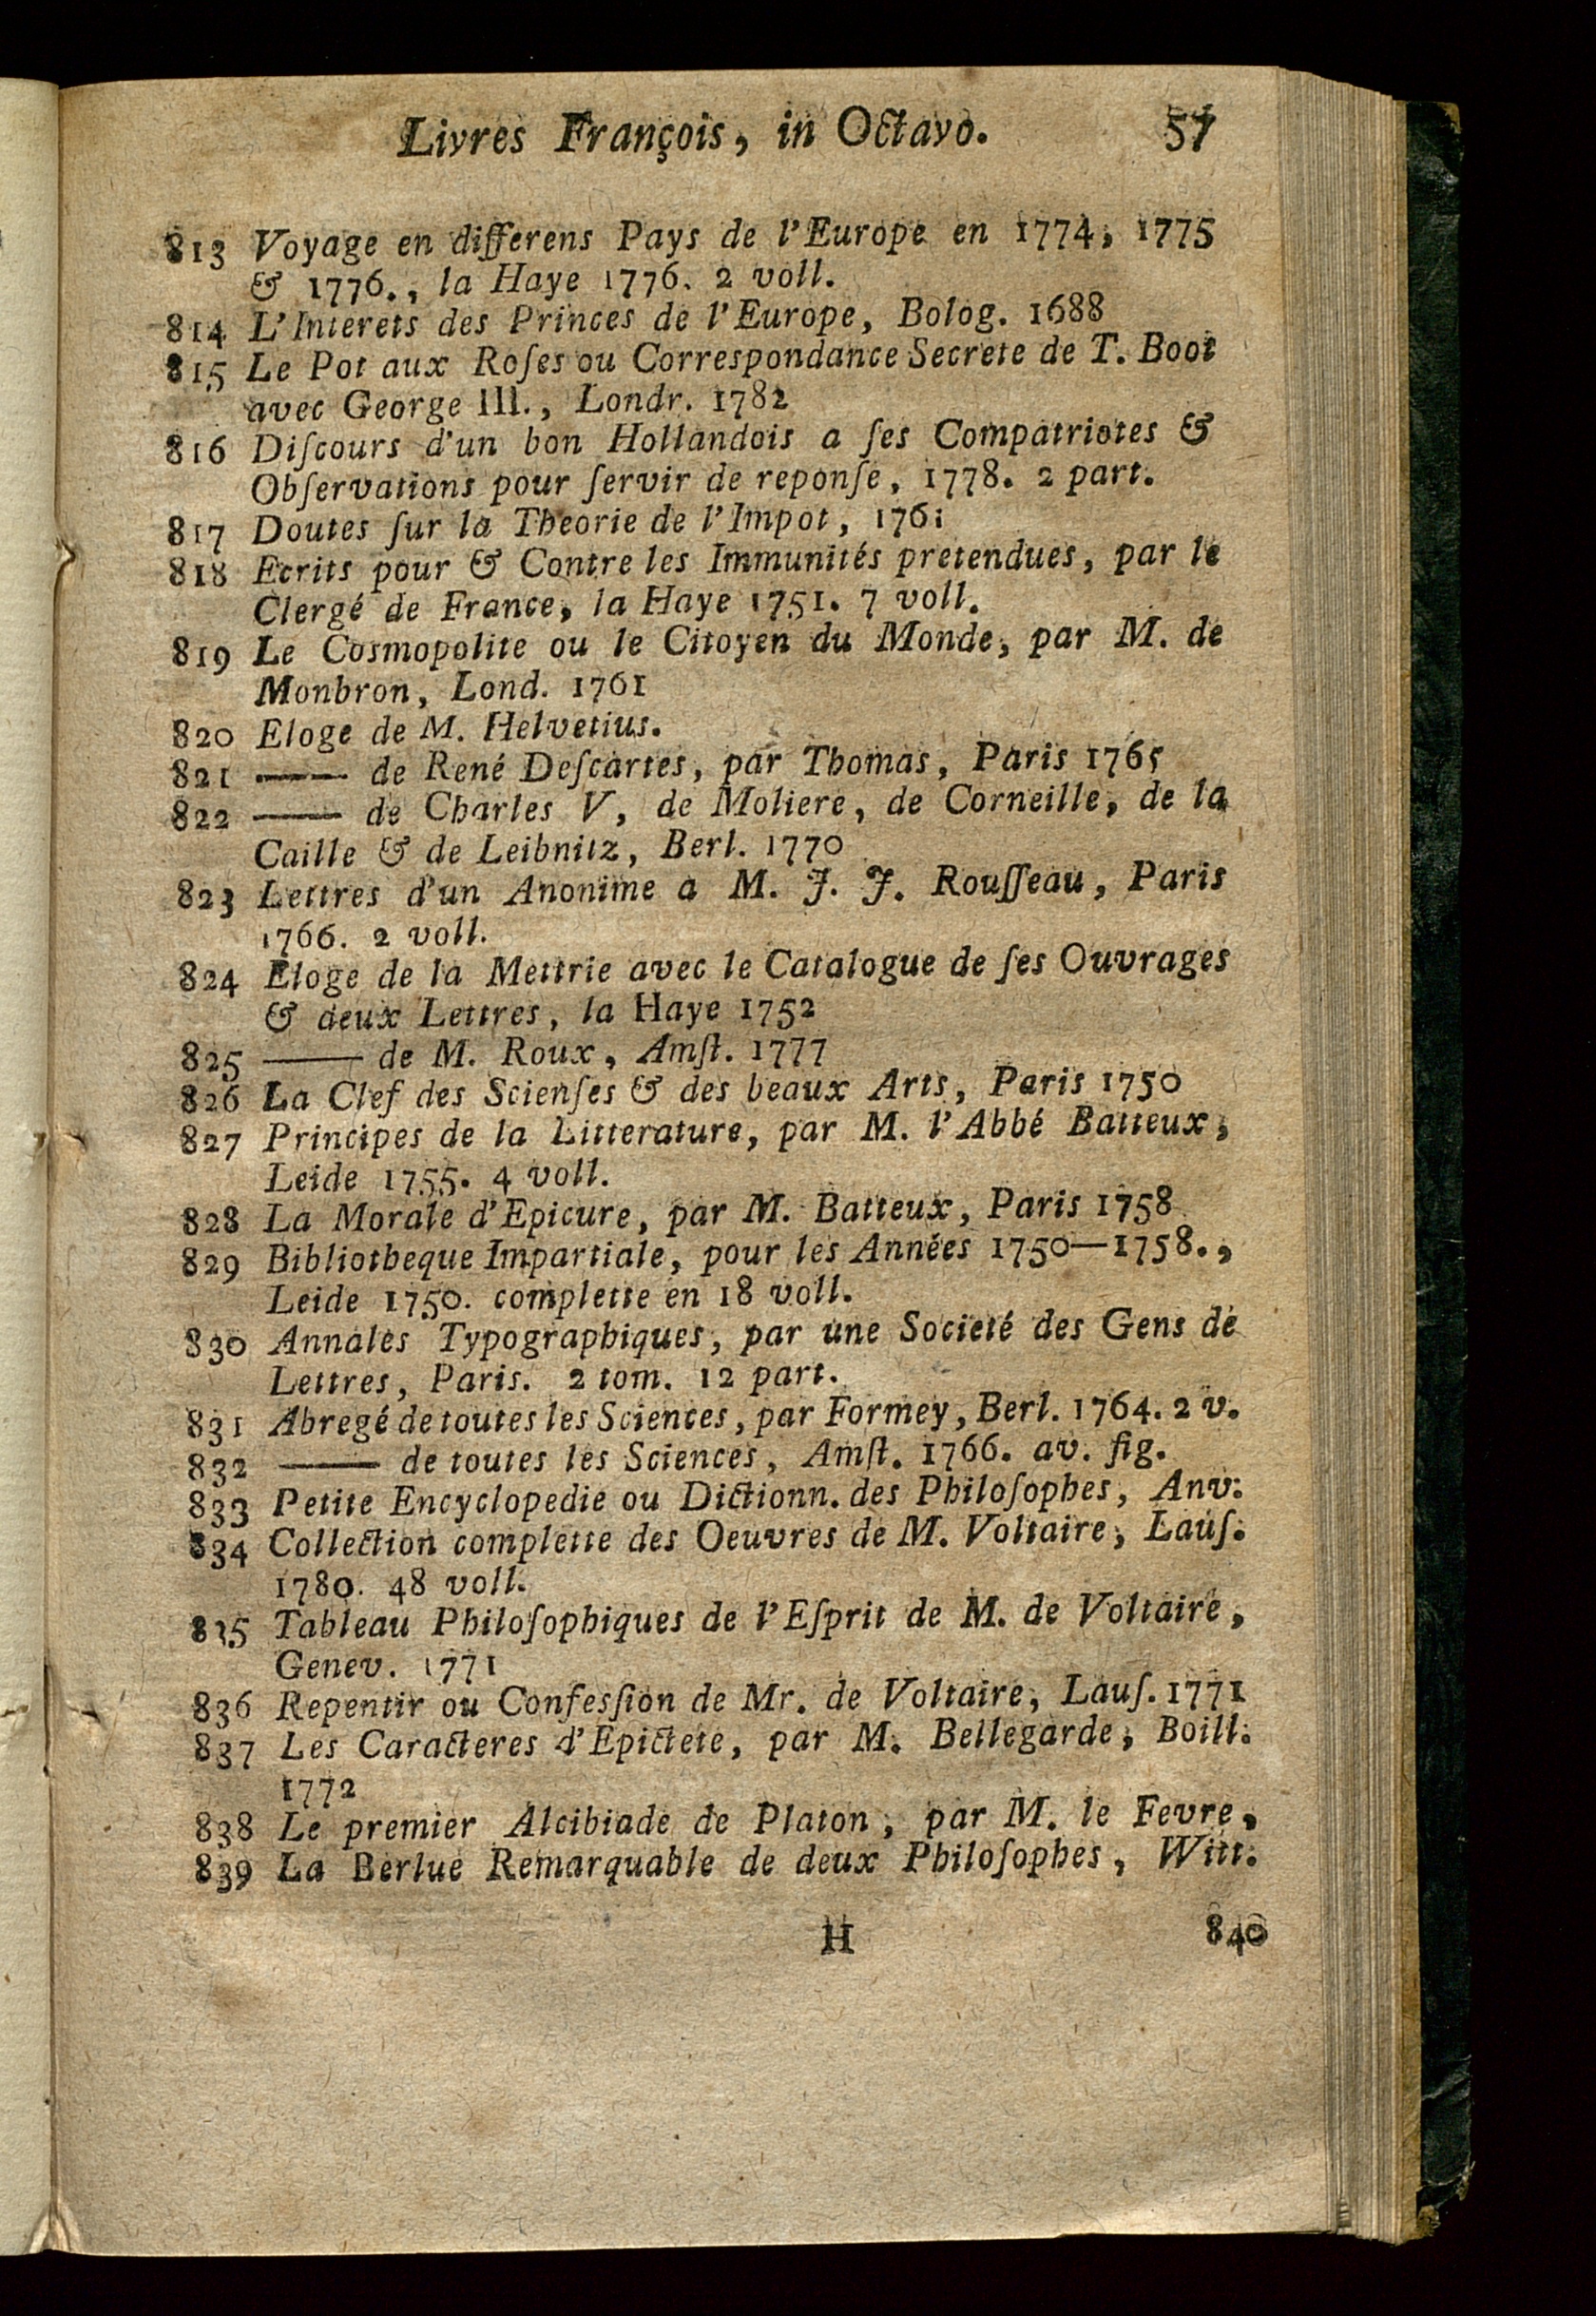 Livres François, in Octavo. 57
813 Voyage en differens Pays de l'Europe en 1774, 1775
& 1776., la Haye 1776. 2 voll.
814 L'Interets des Princes de l'Europe, Bolog. 1688
815 Le Pot aux Roſes ou Correspondance Secrete de T. Boot
avec George III., Londr. 1782
816 Diſcours d'un bon Hollandois a ſes Compatriotes &
Obſervations pour ſervir de reponſe, 1778. 2 part.
817 Doutes ſur la Theorie de l'Impot, 1761
818 Ecrits pour & Contre les Immunités pretendues, par le
Clergé de France, la Haye 1751. 7 voll.
819 Le Cosmopolite ou le Citoyen du Monde, par M. de
Monbron, Lond. 1761
820 Eloge de M. Helvetius.
821 —— de René Deſcartes, par Thomas, Paris 1765
822 —— de Charles V, de Moliere, de Corneille, de la
Caille & de Leibnitz, Berl. 1770
823 Lettres d'un Anonime a M. J. J. Rouſſeau, Paris
1766. 2 voll.
824 Eloge de la Mettrie avec le Catalogue de ſes Ouvrages
& deux Lettres, la Haye 1752
825 —— de M. Roux, Amſt. 1777
826 La Clef des Scienſes & des beaux Arts, Paris 1750
827 Principes de la Litterature, par M. l'Abbé Batteux,
Leide 1755. 4 voll.
828 La Morale d'Epicure, par M. Batteux, Paris 1758
829 Bibliotheque Impartiale, pour les Années 1750—1758.,
Leide 1750. complette en 18 voll.
830 Annales Typographiques, par une Societé des Gens de
Lettres, Paris. 2 tom. 12 part.
831 Abregé de toutes les Sciences, par Formey, Berl. 1764. 2 v.
832 —— de toutes les Sciences, Amſt. 1766. av. fig.
833 Petite Encyclopedie ou Dictionn. des Philoſophes, Anv.
834 Collection complette des Oeuvres de M. Voltaire, Lauſ.
1780. 48 voll.
835 Tableau Philoſophiques de l'Eſprit de M. de Voltaire,
Genev. 1771
836 Repentir ou Confesſion de Mr. de Voltaire, Lauſ. 1771
837 Les Caracteres d'Epictete, par M. Bellegarde, Boill.
1772
838 Le premier Alcibiade de Platon, par M. le Fevre,
839 La Berlue Remarquable de deux Philoſophes, Witt.
H 840